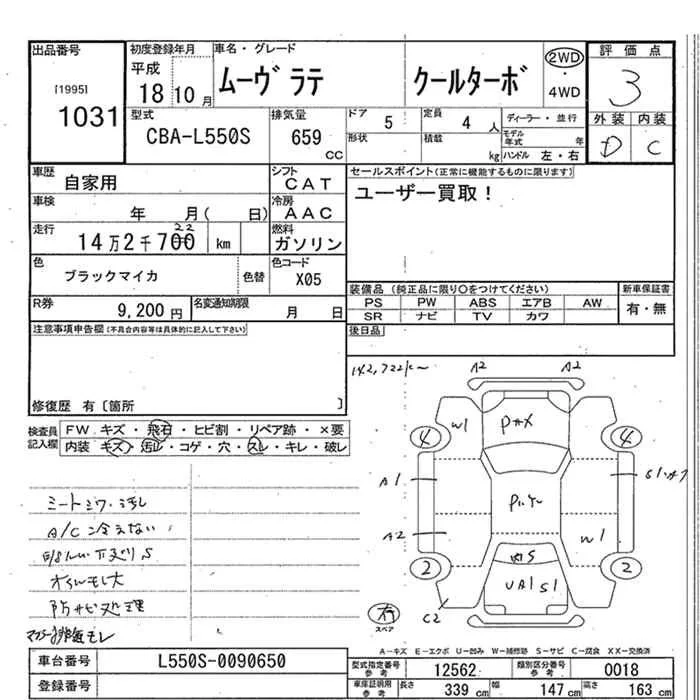 出品番号
[1995]
1031
初度登録年月
平成
18 10 月
車名・グレード
ムーヴ ラテ クールターボ
2WD
・
4WD
評価点
3
外装 内装
D C
型式
CBA-L550S
排気量
659
CC
ドア
5
定員
4 人
形状
積載
kg
ディーラー・並行
モデル年式 年
ハンドル 左・右
車歴
自家用
シフト
CAT
車検
年 月( 日)
冷房
AAC
走行
14万2千700 km
22
燃料
ガソリン
色
ブラックマイカ
色替
色コード
X05
R券
9,200 円
名変通知期限
月 日
セールスポイント(正常に機能するものに限ります)
ユーザー買取!
装備品 (純正品に限り○をつけてください)
PS PW ABS エアB AW
SR ナビ TV カワ
新車保証書
有・無
後日品
注意事項申告欄(不具合内容等は具体的に記入して下さい)
修復歴 有 [箇所 ]
検査員記入欄
FW キズ・飛石・ヒビ割・リペア跡・×要
内装 キズ・汚レ・コゲ・穴・スレ・キレ・破レ
シートシワ・汚レ
A/C冷えない
オイルモレ大
防サビ処理
マフラー排気モレ
142,722km
A2 A2
W1
4 4
A1
A2
W1
2 2
UA1 S1
C2
有
スペア
A-キズ E-エクボ U-凹み W-補修跡 S-サビ C-腐食 XX-交換済
車台番号
L550S-0090650
登録番号
型式指定番号
参考
12562
類別区分番号
参考
0018
車庫証明用
参考
長さ 339 cm
幅 147 cm
高さ 163 cm